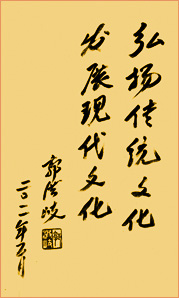 弘扬传统文化
发展现代文化
二〇一一年五月